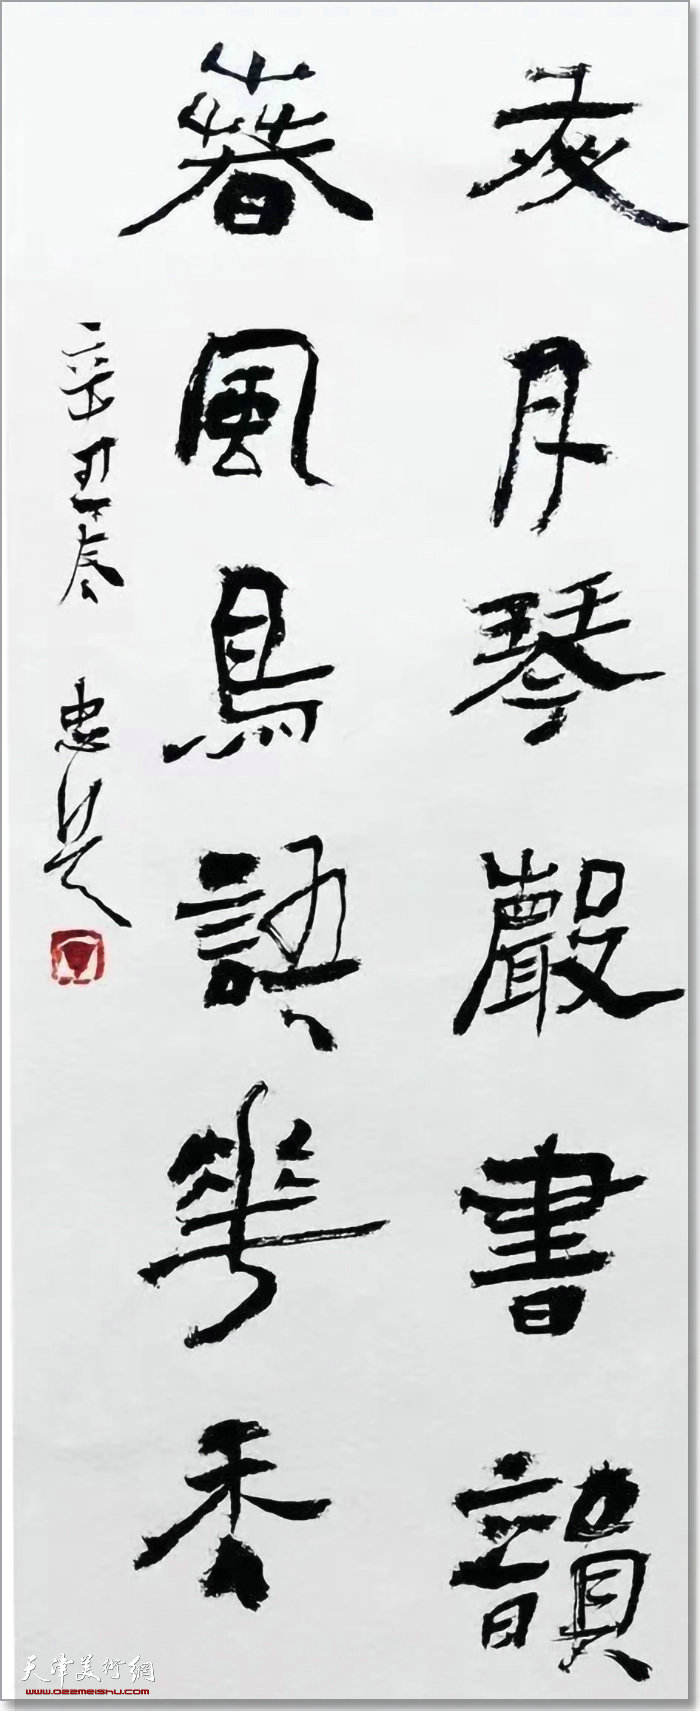 夜月琴聲書韻
萅風鳥語華香
辛丑春 忠芳
天津美術網
www.022meishu.com